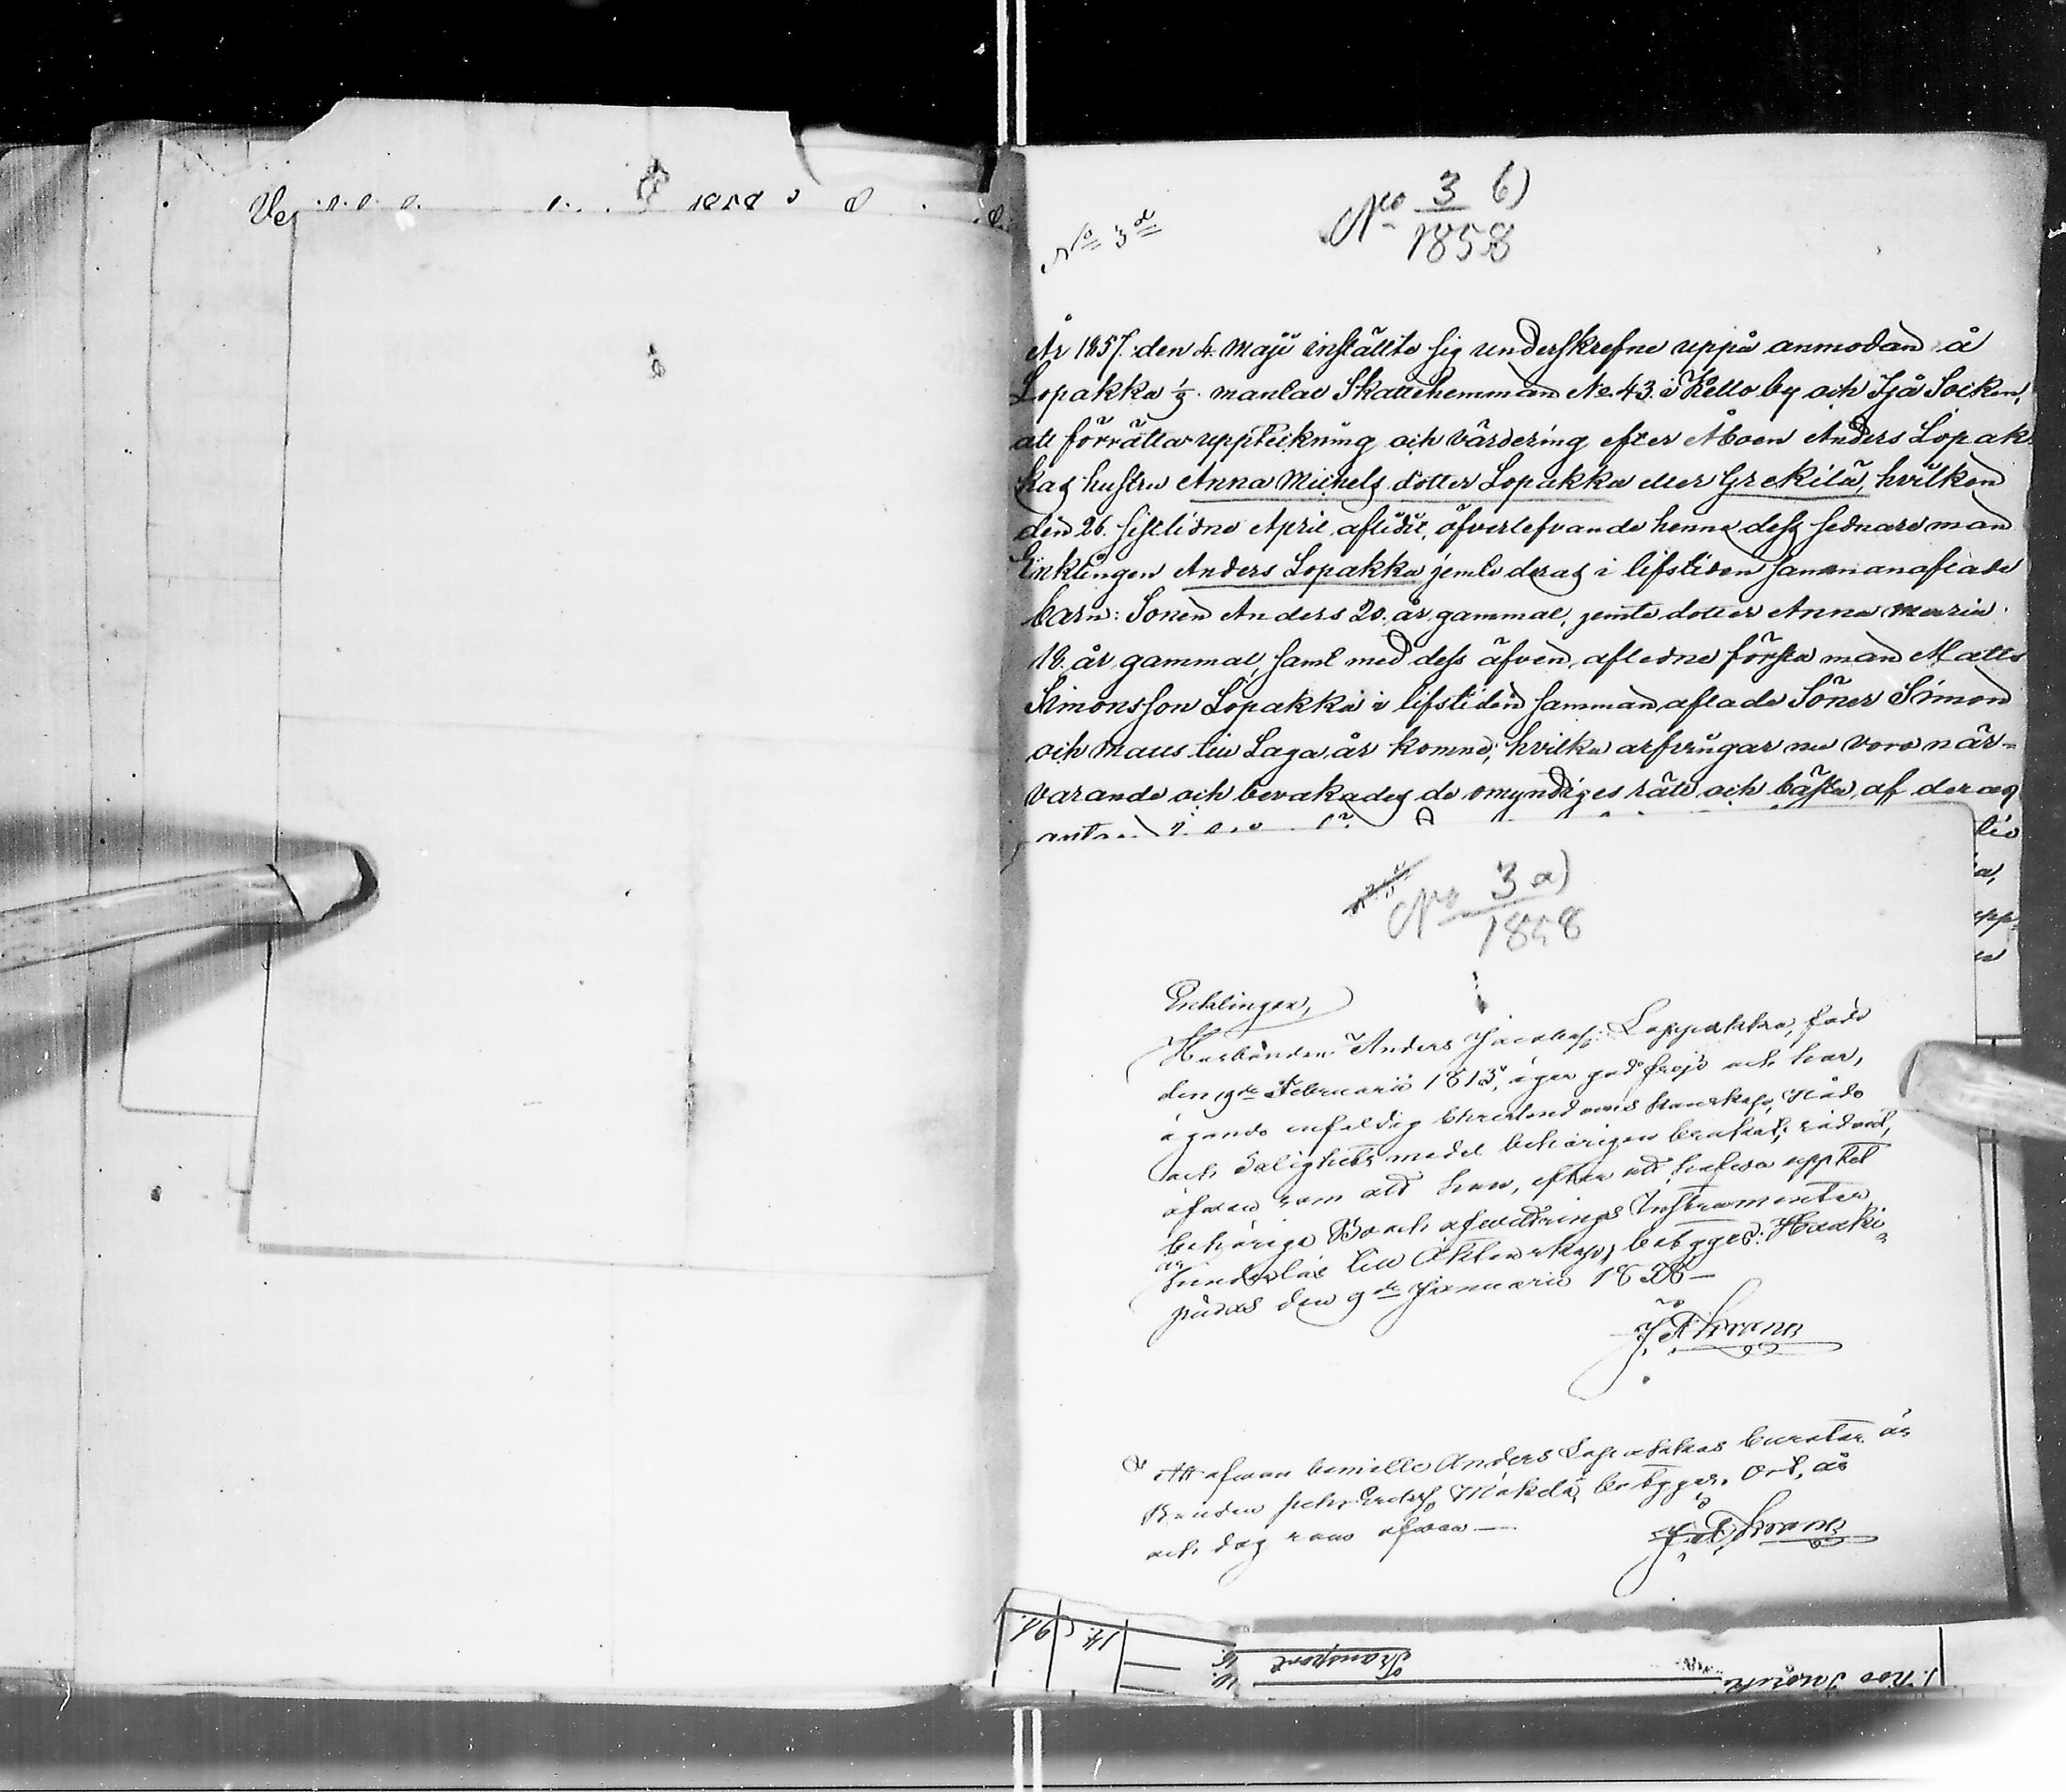 No 3 b)
1858
No 3
År 1857. den 4. Maji instälte sig underskrefne uppå anmodan å
Lopakka mantal Skattehemman No 43. i Kello by och Ijå Socken,
att förrätta uppteckning och värdering efter Åboen Anders Lopak-
kas hustru Anna Michelsdotter Lopakka eller Grekilä, hvilken
den 26. sistlidne April aflidit, öfverlefvande henne dess sednare man
Enklingen Anders Lopakka jemte deras i lifstiden sammanaflade
barn: Sonen Anders 20. år gammal, jemte dotter Anna Maria
18. år gammal, samt med dess äfven afledne första man Matts
Simonsson Lopakka i lifstiden sammanaflade Söner Simon
och Matts till Laga år komne; hvilka arfvingar nu voro när-
varande och bevakades de omyndiges rätt och bästa af deras
No 3 a)
1858
Encklingen,
Husbonden Anders Jacobss: Loppakka, född
den 19de Februarii 1813, äger god frejd och har,
ägande enfaldig Christendoms kunskap, Nåde
och Salighets medel behörigen brukat;
äfven som att han, efter att hafva upptet
behörige Bo och afvittrings Instrumenter,
är hinderlös till Äktenskap; betygar: Hauki-
pudas den 9de Januarii 1858
Att ofvan bemälte Anders Lopakkas Curator är
Bonden betygar. Ort, år
och dag som ofvan
Transport